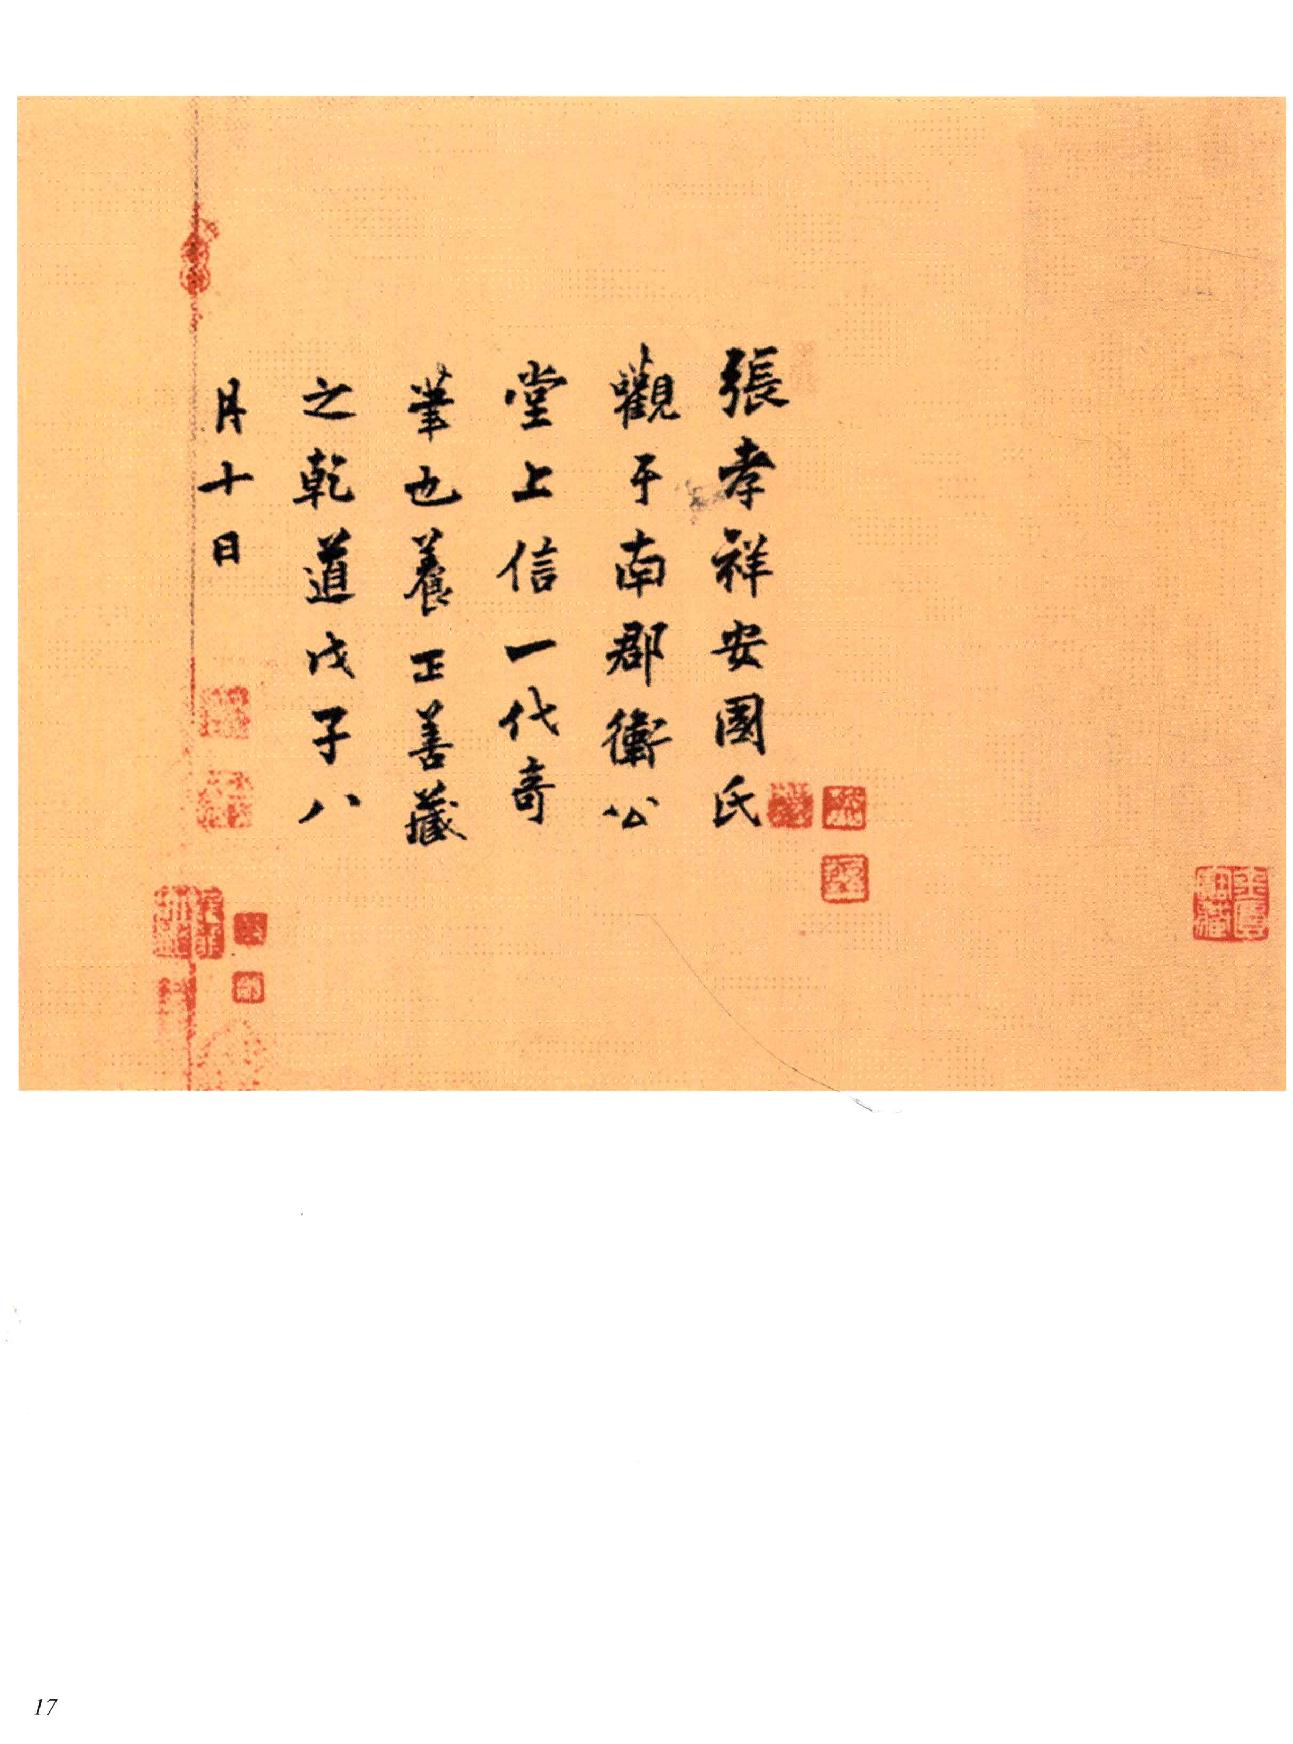 張孝祥安國氏
觀于南郡衛公
堂上信一代奇
筆也養正善藏
之乾道戊子八
月十日
17